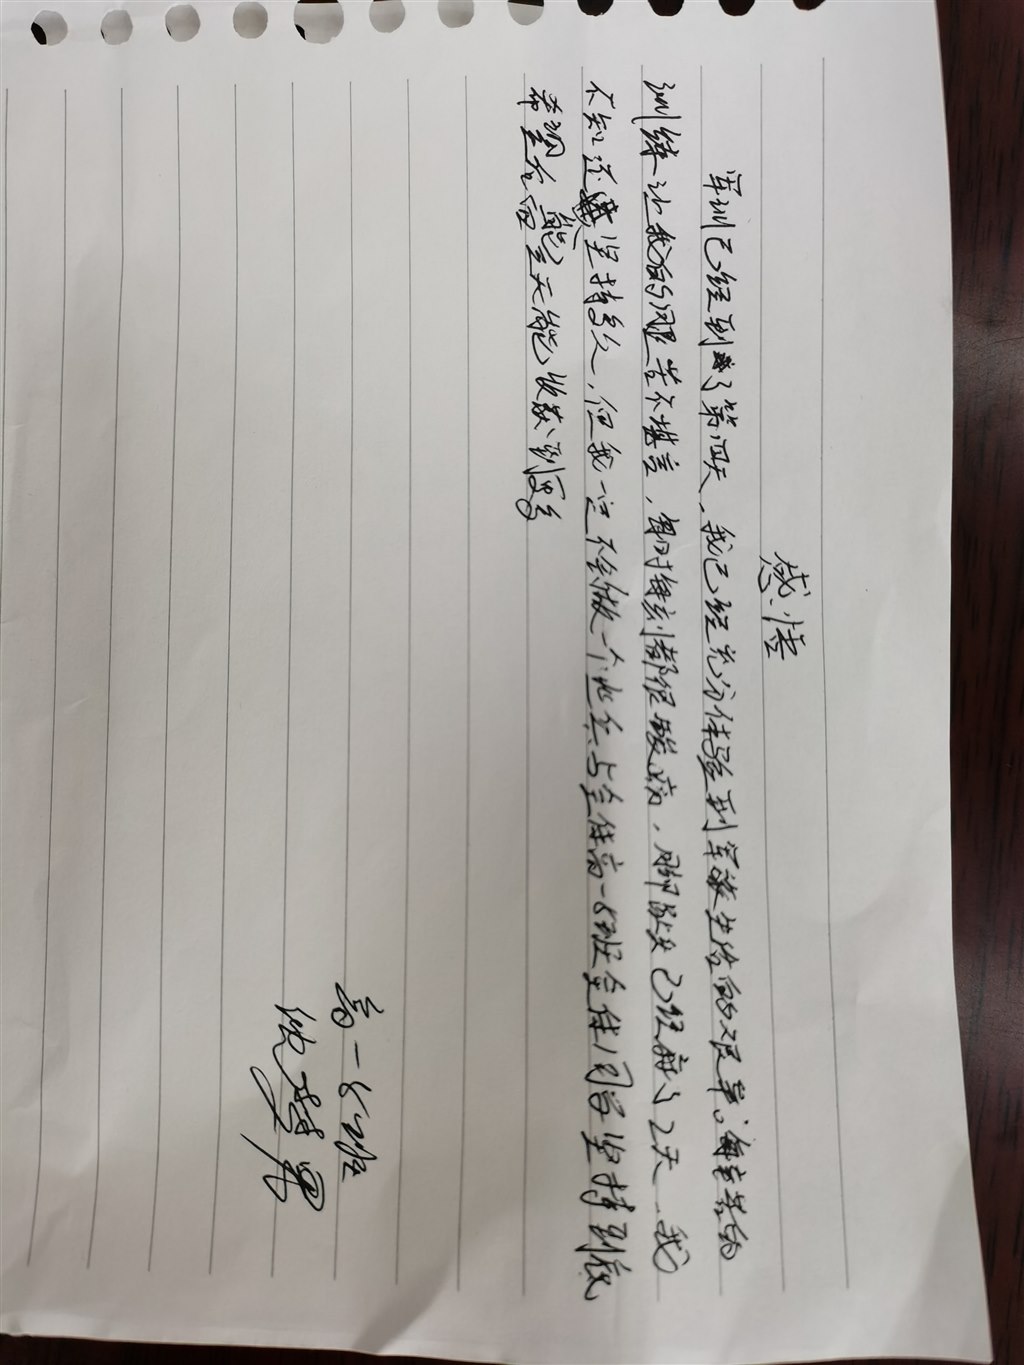 感悟
军训已经到了第四天,我已经充分体验到军旅生活的艰辛。每天的
训练让我的腿苦不堪言,每时每刻都很酸痛,脚趾头已经麻了2天,我
不知还能坚持多久,但我一定不会做一个逃兵与全体高一8班全体同学坐持到底
希望今后三天能收获到更多
高一8班